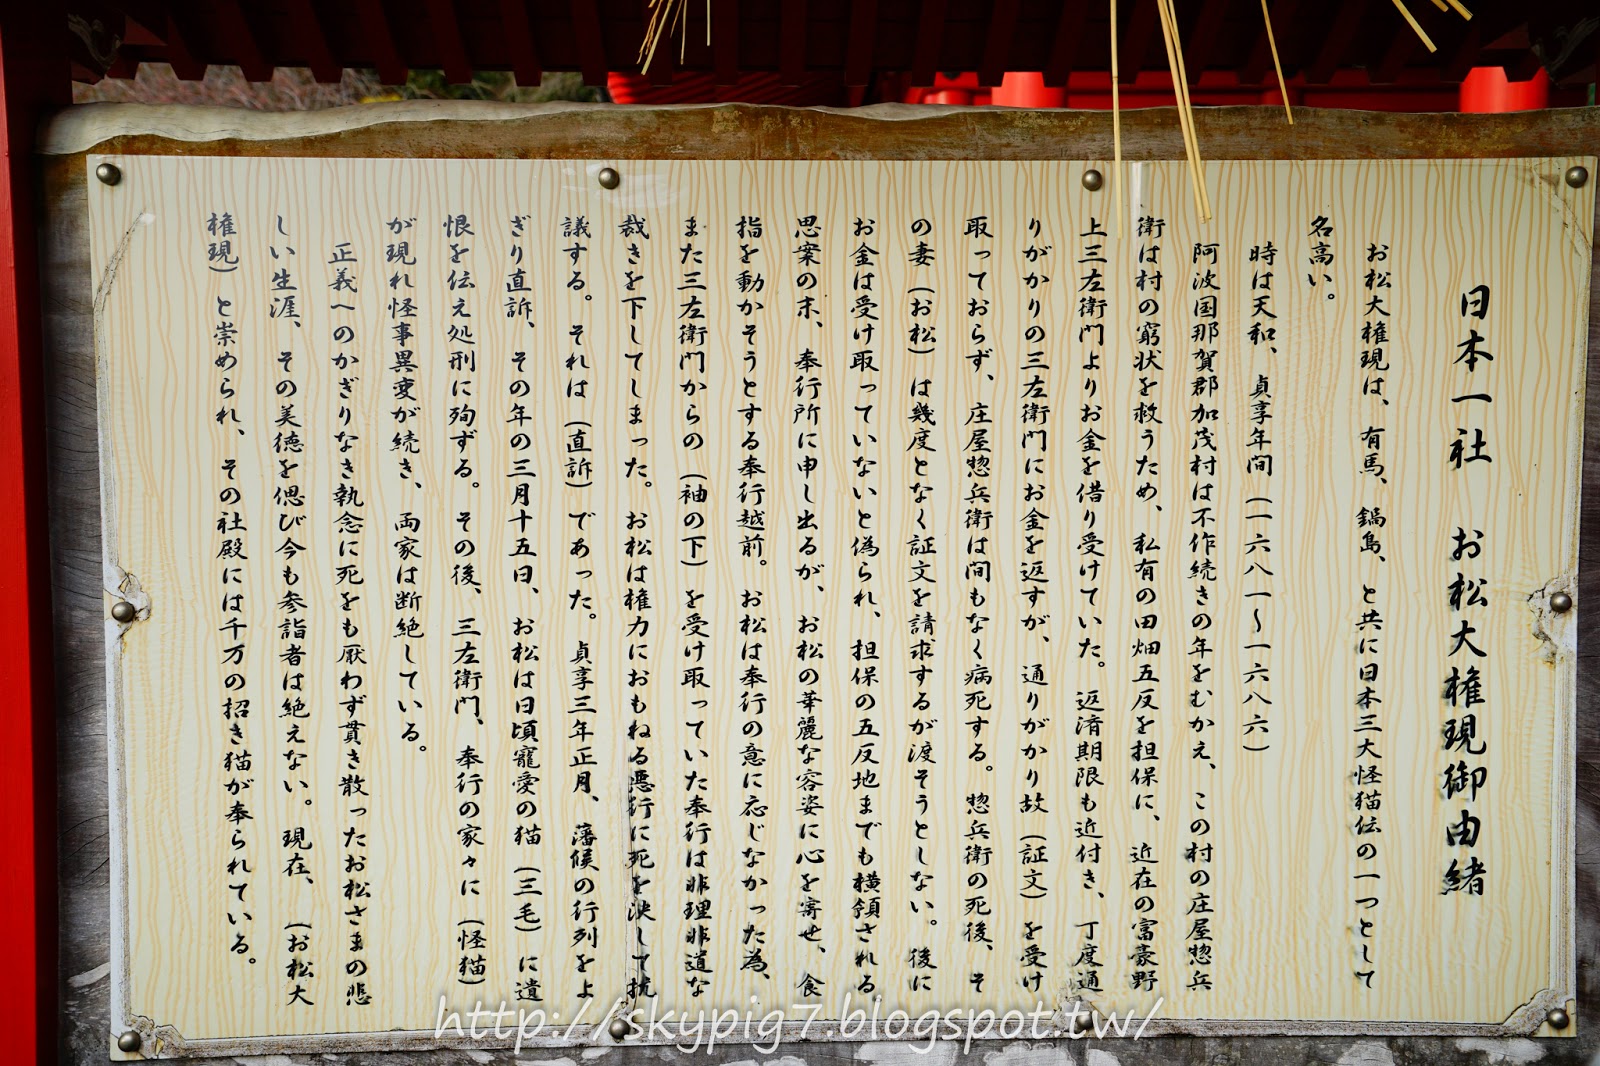 日本一社　お松大権現御由緒
お松大権現は、有馬、鍋島、と共に日本三大怪猫伝の一つとして
名高い。
時は天和、貞享年間（一六八一～一六八六）
阿波国那賀郡加茂村は不作続きの年をむかえ、この村の庄屋惣兵
衛は村の窮状を救うため、私有の田畑五反を担保に、近在の富豪野
上三左衛門よりお金を借り受けていた。返済期限も近付き、丁度通
りがかりの三左衛門にお金を返すが、通りがかり故（証文）を受け
取っておらず、庄屋惣兵衛は間もなく病死する。惣兵衛の死後、そ
の妻（お松）は幾度となく証文を請求するが渡そうとしない。後に
お金は受け取っていないと偽られ、担保の五反地までも横領される
思案の末、奉行所に申し出るが、お松の華麗な容姿に心を寄せ、食
指を動かそうとする奉行越前。お松は奉行の意に応じなかった為、
また三左衛門からの（袖の下）を受け取っていた奉行は非理非道な
裁きを下してしまった。お松は権力におもねる悪行に死を決して抗
議する。それは（直訴）であった。貞享三年正月、藩候の行列をよ
ぎり直訴、その年の三月十五日、お松は日頃寵愛の猫（三毛）に遺
恨を伝え処刑に殉ずる。その後、三左衛門、奉行の家々に（怪猫）
が現れ怪事異変が続き、両家は断絶している。
正義へのかぎりなき執念に死をも厭わず貫き散ったお松さまの悲
しい生涯、その美徳を偲び今も参詣者は絶えない。現在、（お松大
権現）と崇められ、その社殿には千万の招き猫が奉られている。
http://skypig7.blogspot.tw/